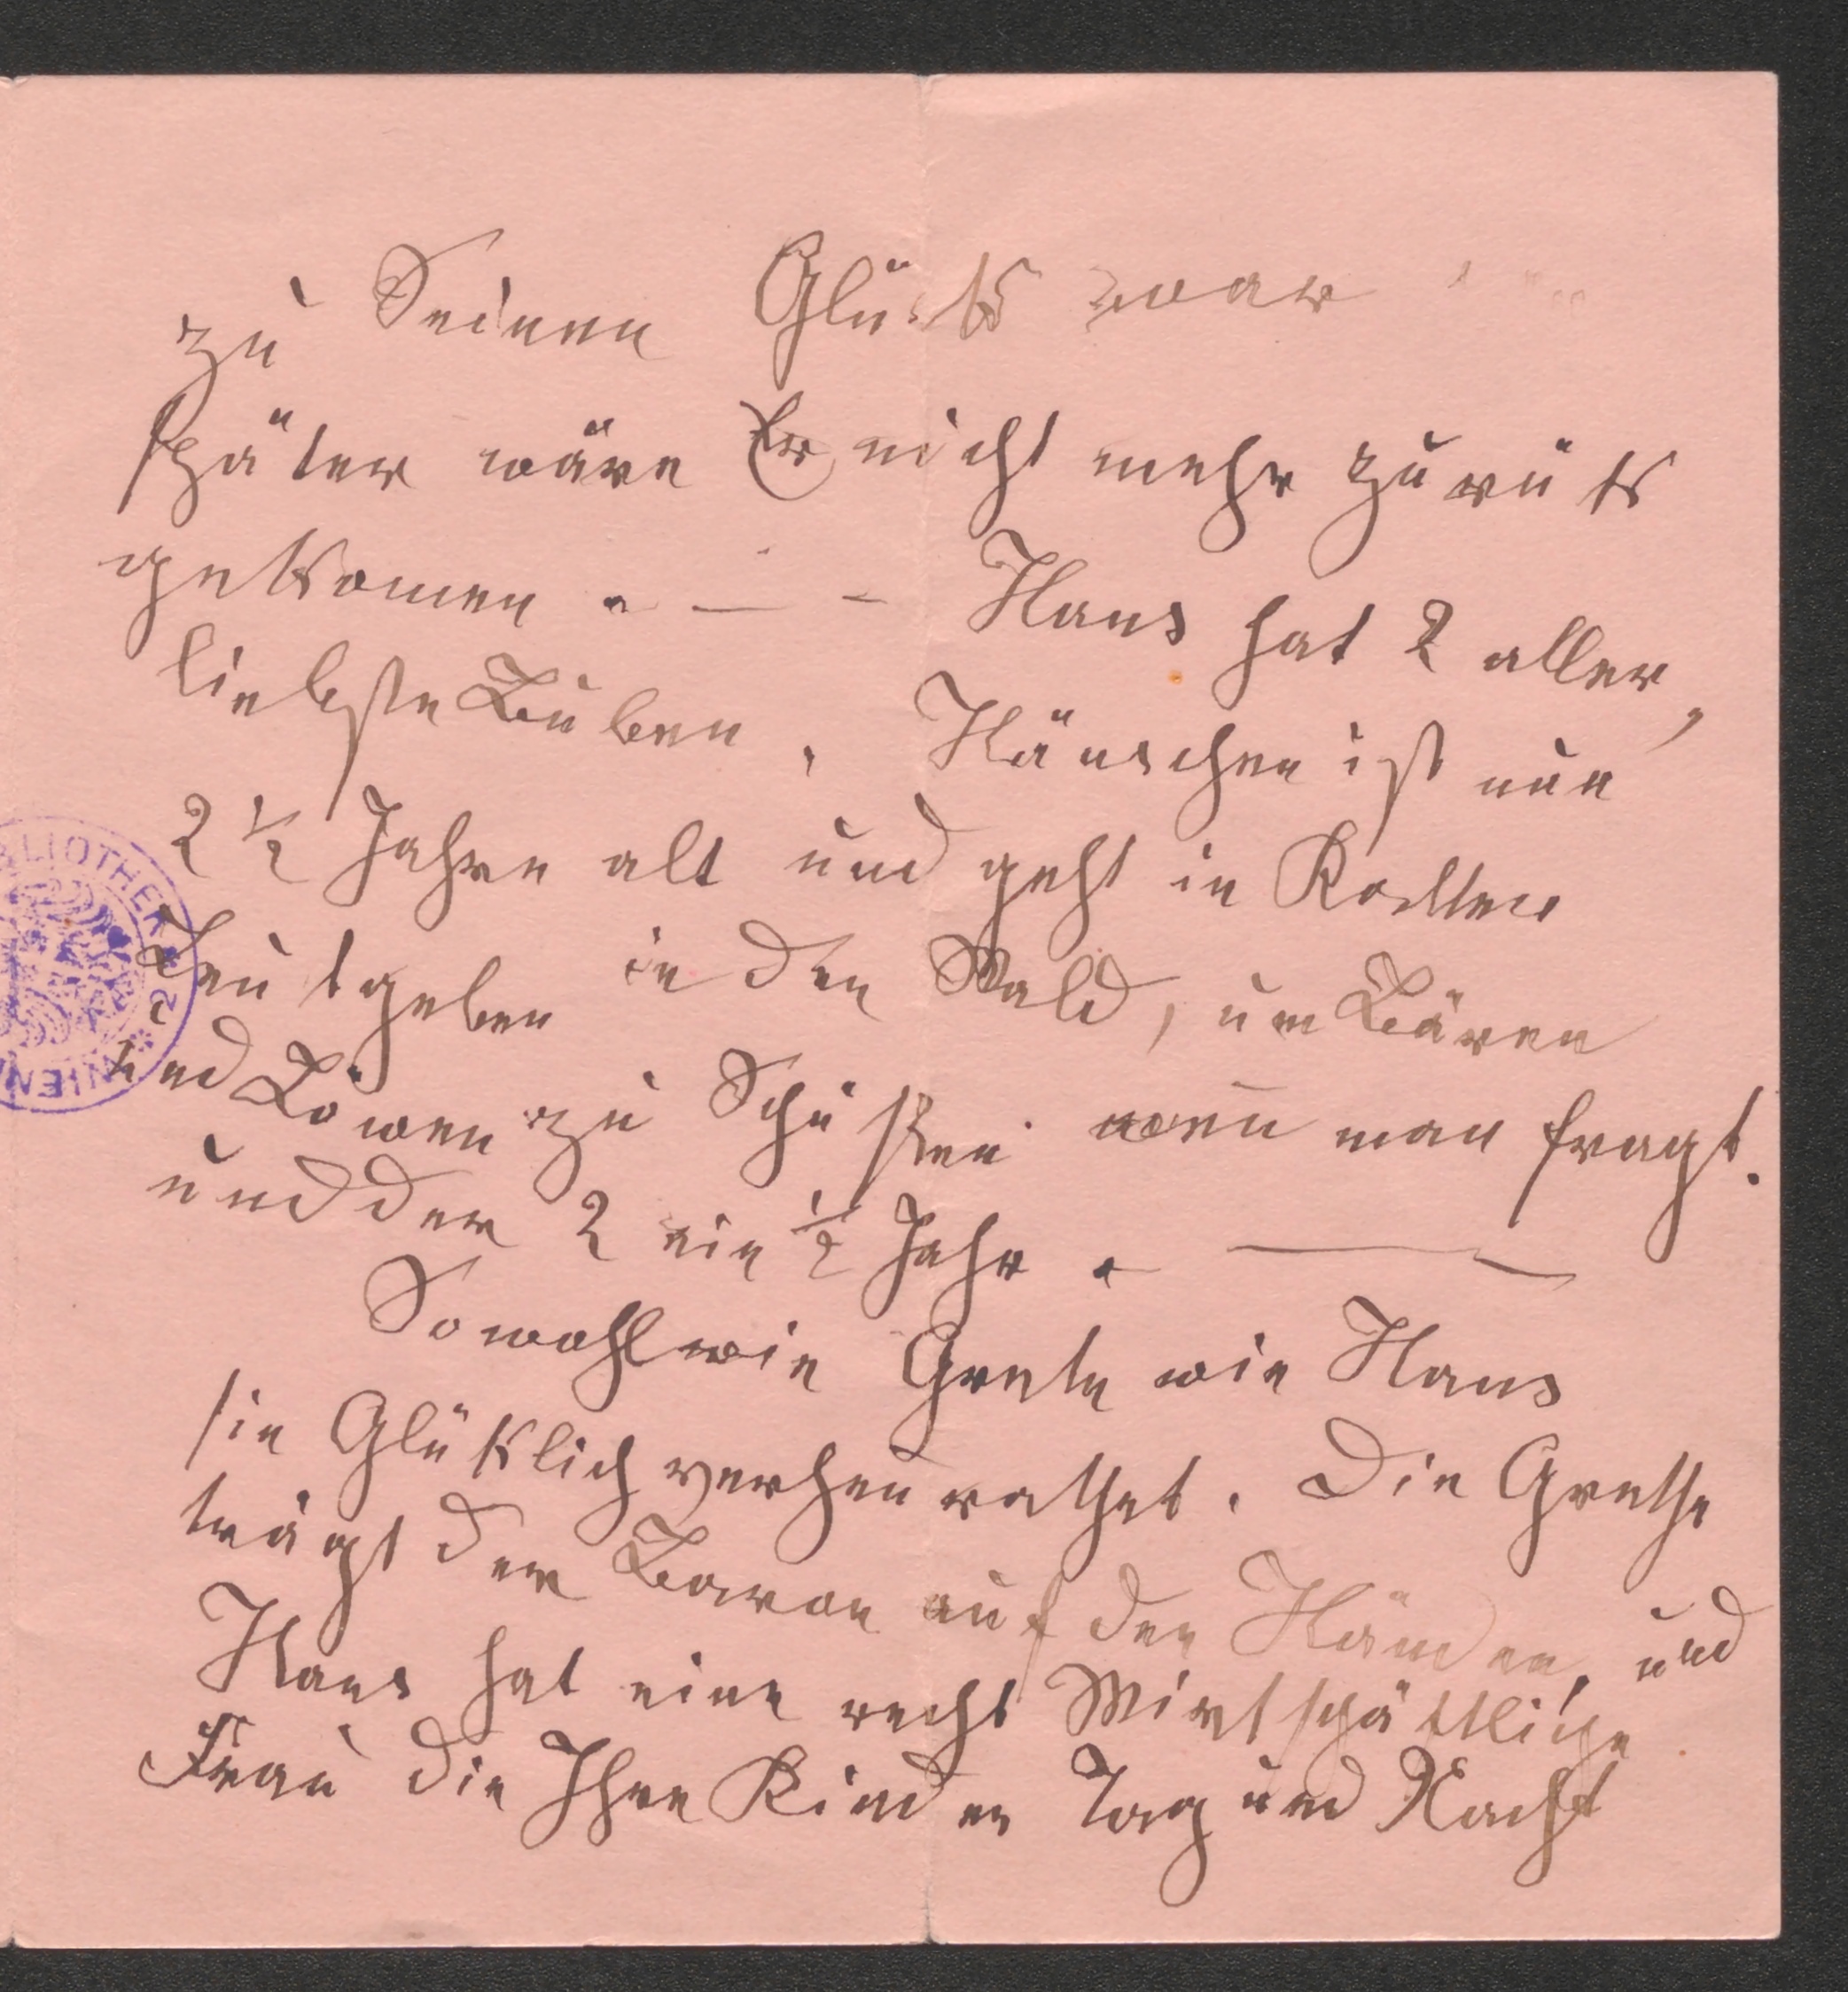 zu Seinen Glük war
später wäre Er nicht mehr zurük
gekomen. — - Hans hat 2 aller,
liebste Buben, Hänschen ist nun
2 ½ Jahre alt und geht in
in den Wald, um Bären
und Löwen zu Schüßen weñ man fragt.
und der 2 ein ½ Jahr. —
Sowohl wie Grete wie Hans
sie Glüklich verheurathet. Die Grethe
trägt der Baron auf den Händen, und
Hans hat eine recht Wirtschättliche
Frau die Ihre Kinder Tag und Nacht
BIBLIOTHEK
WIEN